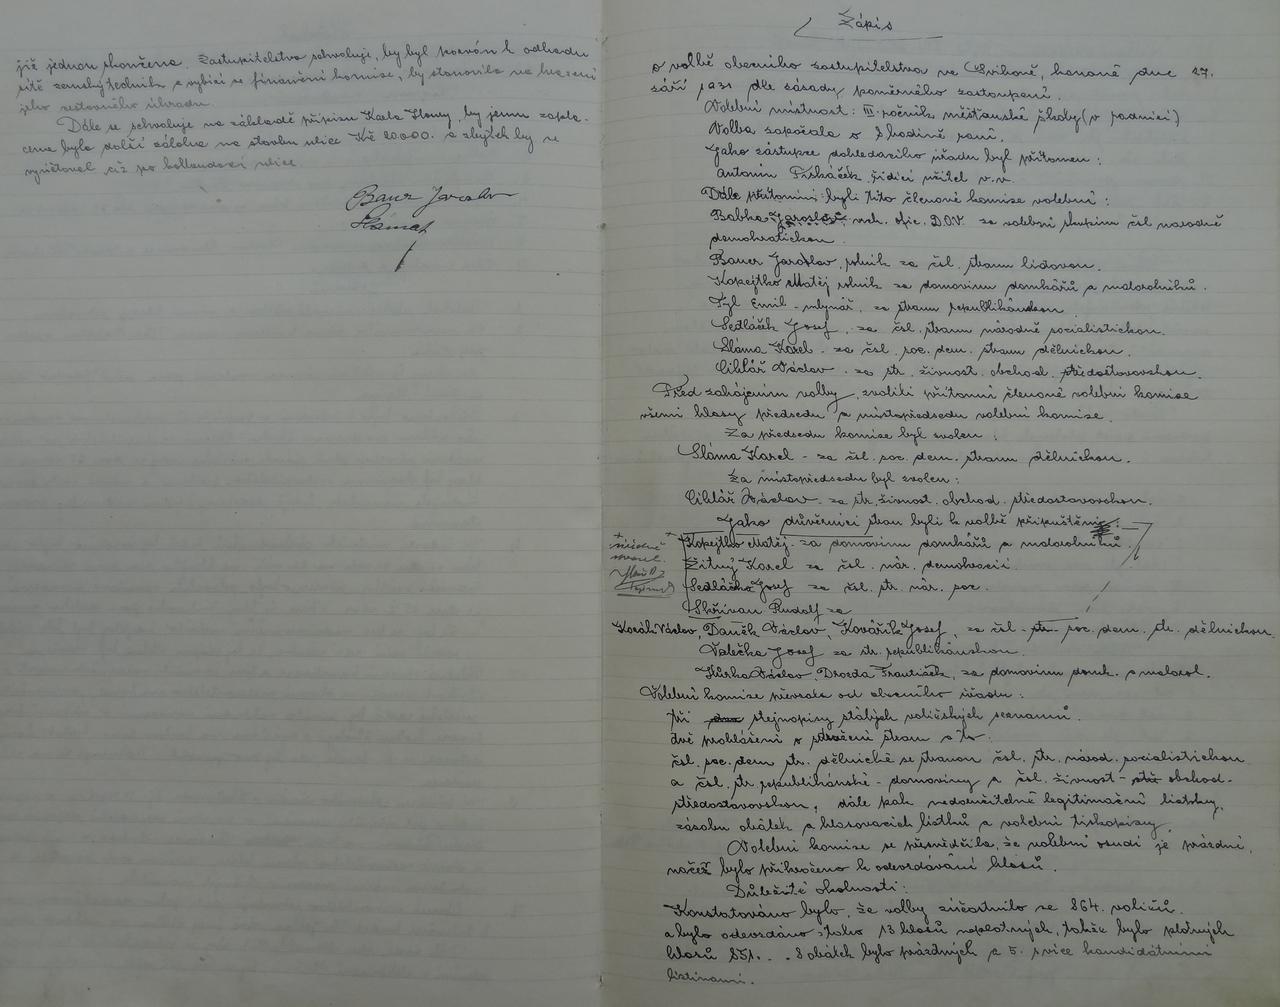 již jednou skončena. Zastupitelstvo schvaluje, by byl pozván k odhadu
sítě zemský technik a vybízí se finanční komise, by stanovila na
jeho cestovného úhradu.
Dále se schvaluje na základě přípisu Karla Slámy, by jemu zapla-
cena byla další záloha na stavbu ulice Kč 20000.- a zbytek by se
vyúčtoval až po kolaudaci ulice.
Bauer Jaroslav
Sláma K
Zápis
o volbě obecního zastupitelstva ve konané dne 27.
září 1931 dle zásady poměrného zastoupení.
Volební místnost: III. ročník měšťanské školy (v radnici)
Volba započala o 8 hodině ranní.
Jako zástupce dohledacího úřadu byl přítomen:
Antonín řídící učitel v.v.
Dále přítomni byli tito členové komise volební:
Babka Jaroslav, ofic. D.O.V. za volební skupinu čsl. národně
demokratickou.
Bauer Jaroslav, rolník za čsl. stranu lidovou.
Kopejtko Matěj rolník za domovinu domkářů a malorolníků.
Tyl Emil - mlynář, za stranu republikánskou.
Sedláček Josef, za čsl. stranu národně socialistickou.
Sláma Karel - za čsl. soc. dem. stranu dělnickou.
Cihlář Václav - za str. živnost. obchod. středostavovskou.
Před zahájením volby zvolili přítomní členové volební komise
všemi hlasy předsedu a místopředsedu volební komise.
Za předsedu komise byl zvolen:
Sláma Karel - za čsl. soc. dem. stranu dělnickou.
Za místopředsedu byl zvolen:
Cihlář Václav - za str. živnost. obchod. středostavovskou.
Jako důvěrníci stran byli k volbě připuštěni:
Kopejtko Matěj - za domovinu domkářů a malorolníků.
Žitný Karel za čsl. nár. demokracii.
Sedláček Josef za čsl. str. nár. soc.
Skřivan Rudolf za
Korák Václav, Daněk Václav, Kovářík Josef, za čsl. str. soc. dem. str. dělnickou.
Valečka Josef za str. republikánskou.
Hůrka Václav, Drozda František, za domovinu domk. a malorol.
Volební komise převzala od obecního úřadu:
tři stejnopisy stálých voličských seznamů.
dvě prohlášení o sdružení stran a to:
čsl. soc. dem. str. dělnické se stranou čsl. str. národ. socialistickou
a čsl. str. republikánské - domoviny a čsl. živnost - stř obchod-
středostavovskou, dále pak nedoručitelné legitimační lístky,
zásobu obálek a hlasovacích lístků a volební tiskopisy.
Volební komise se přesvědčila, že volební osudí je prázdné,
načež bylo přikročeno k odevzdávání hlasů.
Důležité okolnosti:
Konstatováno bylo, že volby zúčastnilo se 864. voličů.
a bylo odevzdáno toho 13 hlasů neplatných, takže bylo platných
hlasů 851. - 8 obálek bylo prázdných a 5. s více kandidátními
listinami.